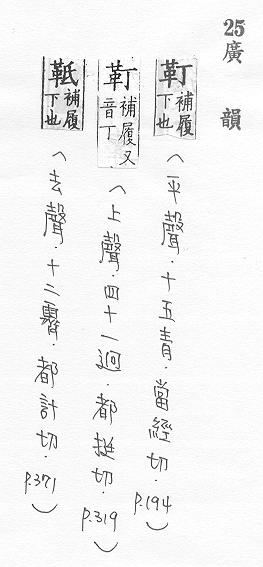 25廣韻
靪 補履下也 (平聲.十五青.當經切.P.194)
靪 補履又音丁 (上聲.四十一迥.都挺切.P.319)
䩚 補履下也 (去聲.十二霽.都計切.P.371)